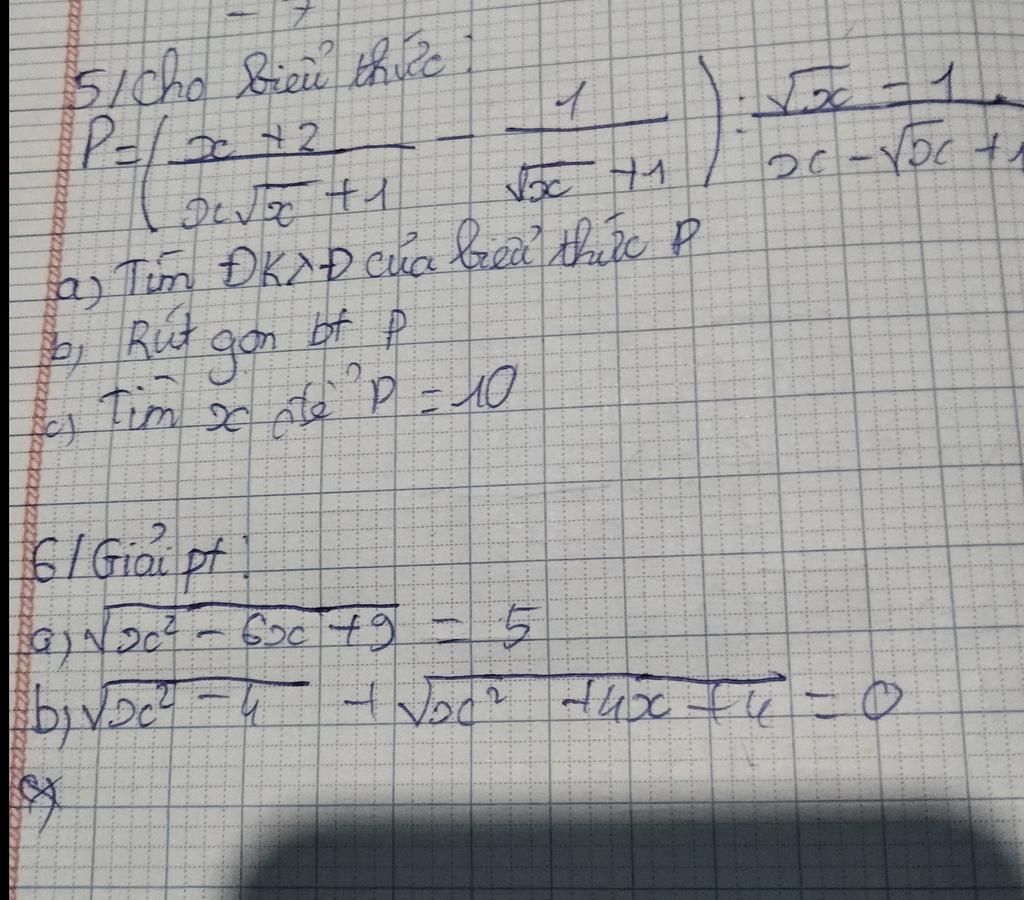 - 7
5/ Cho biểu thức:
P = ( (x + 2)/(x√x + 1) - 1/(√x + 1) ) : (√x - 1)/(x - √x + 1
a) Tìm ĐKXĐ của biểu thức P
b, Rút gọn bt P
c) Tìm x để P = 10
6/ Giải pt:
a) √(x² - 6x + 9) = 5
b) √(x² - 4) + √(x² + 4x + 4) = 0